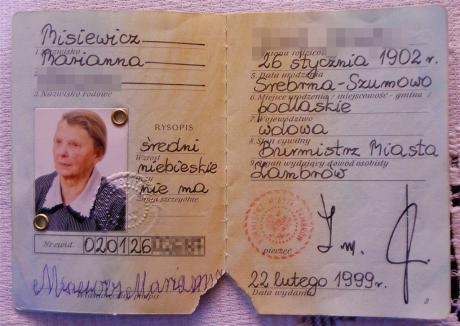 Misiewicz
Marianna
2. Nazwisko rodowe
RYSOPIS
średni
Wzrost
niebieskie
nie ma
Znaki szczególne
Nr ewid. 020126
26 stycznia 1902 r.
5. Data urodzenia
Srebrna-Szumowo
6. Miejsce urodzenia / miejscowość - gmina
podlaskie
7. Województwo
wdowa
8. Stan cywilny
Burmistrz Miasta
9. Organ wydający dowód osobisty
Zambrów
pieczęć
22 lutego 1999 r.
Data wydania